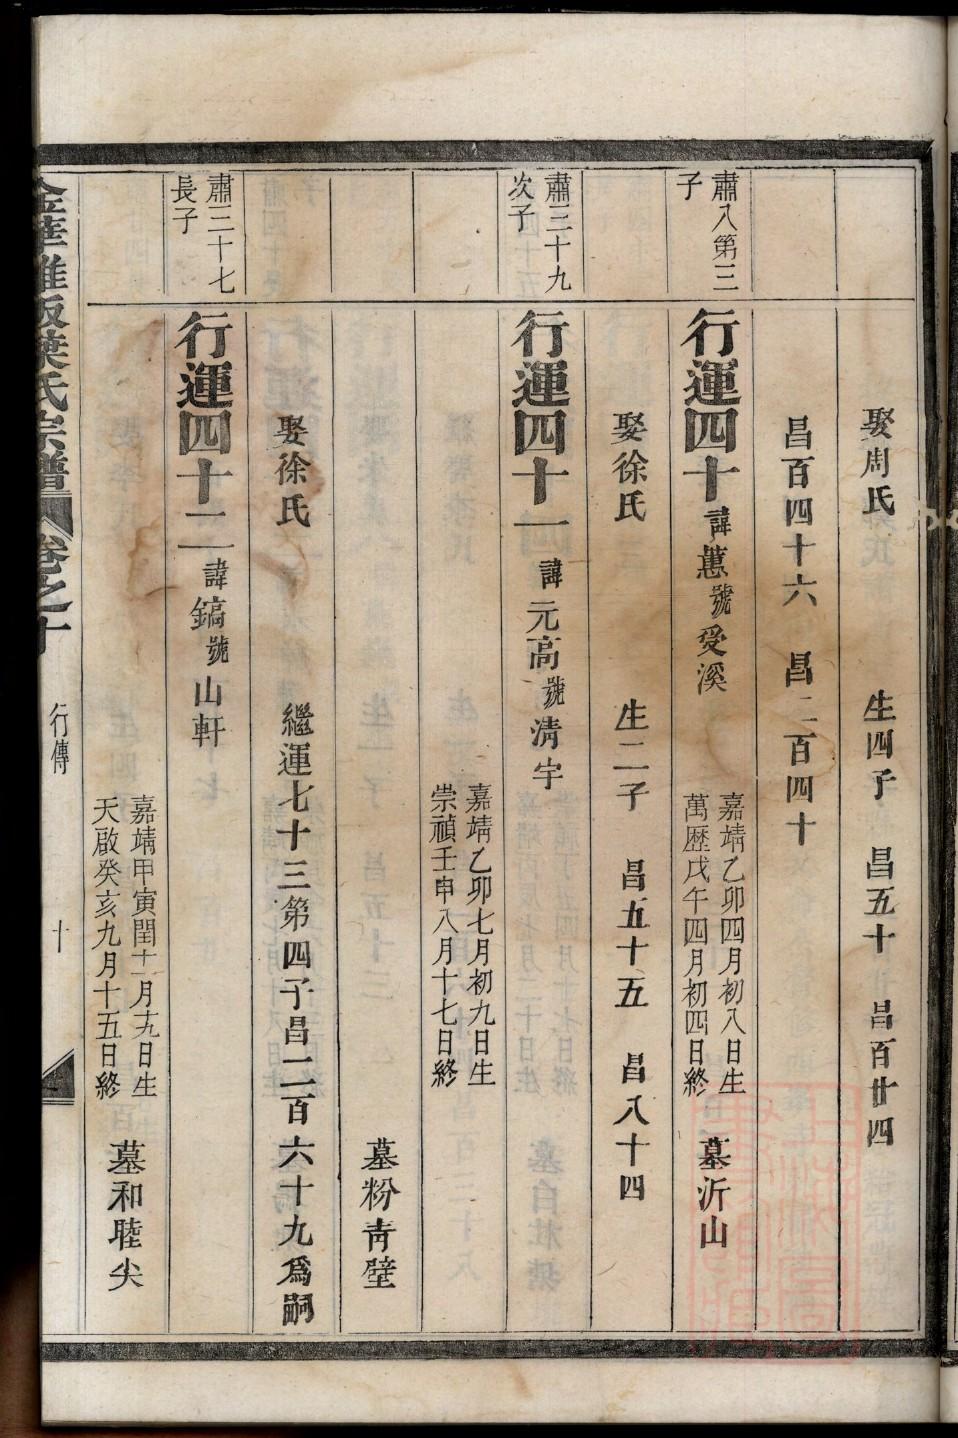 娶周氏 生四子 昌五十 昌百廿四
昌百四十六 昌二百四十
肅八第三子
行運四十 諱蕙號受溪 嘉靖乙卯四月初八日生 萬歷戊午四月初四日終 墓沂山
娶徐氏 生二子 昌五十五 昌八十四
肅三十九次子
行運四十一 諱元高號清宇
嘉靖乙卯七月初九日生 崇禎壬申八月十七日終
墓粉青壁
娶徐氏 繼運七十三第四子昌二百六十九爲嗣
肅三十七長子
行運四十二 諱鎬號山軒
嘉靖甲寅閏十一月十九日生 天啟癸亥九月十五日終 墓和睦尖
金華雅畈葉氏宗譜 卷之十 行傳 十